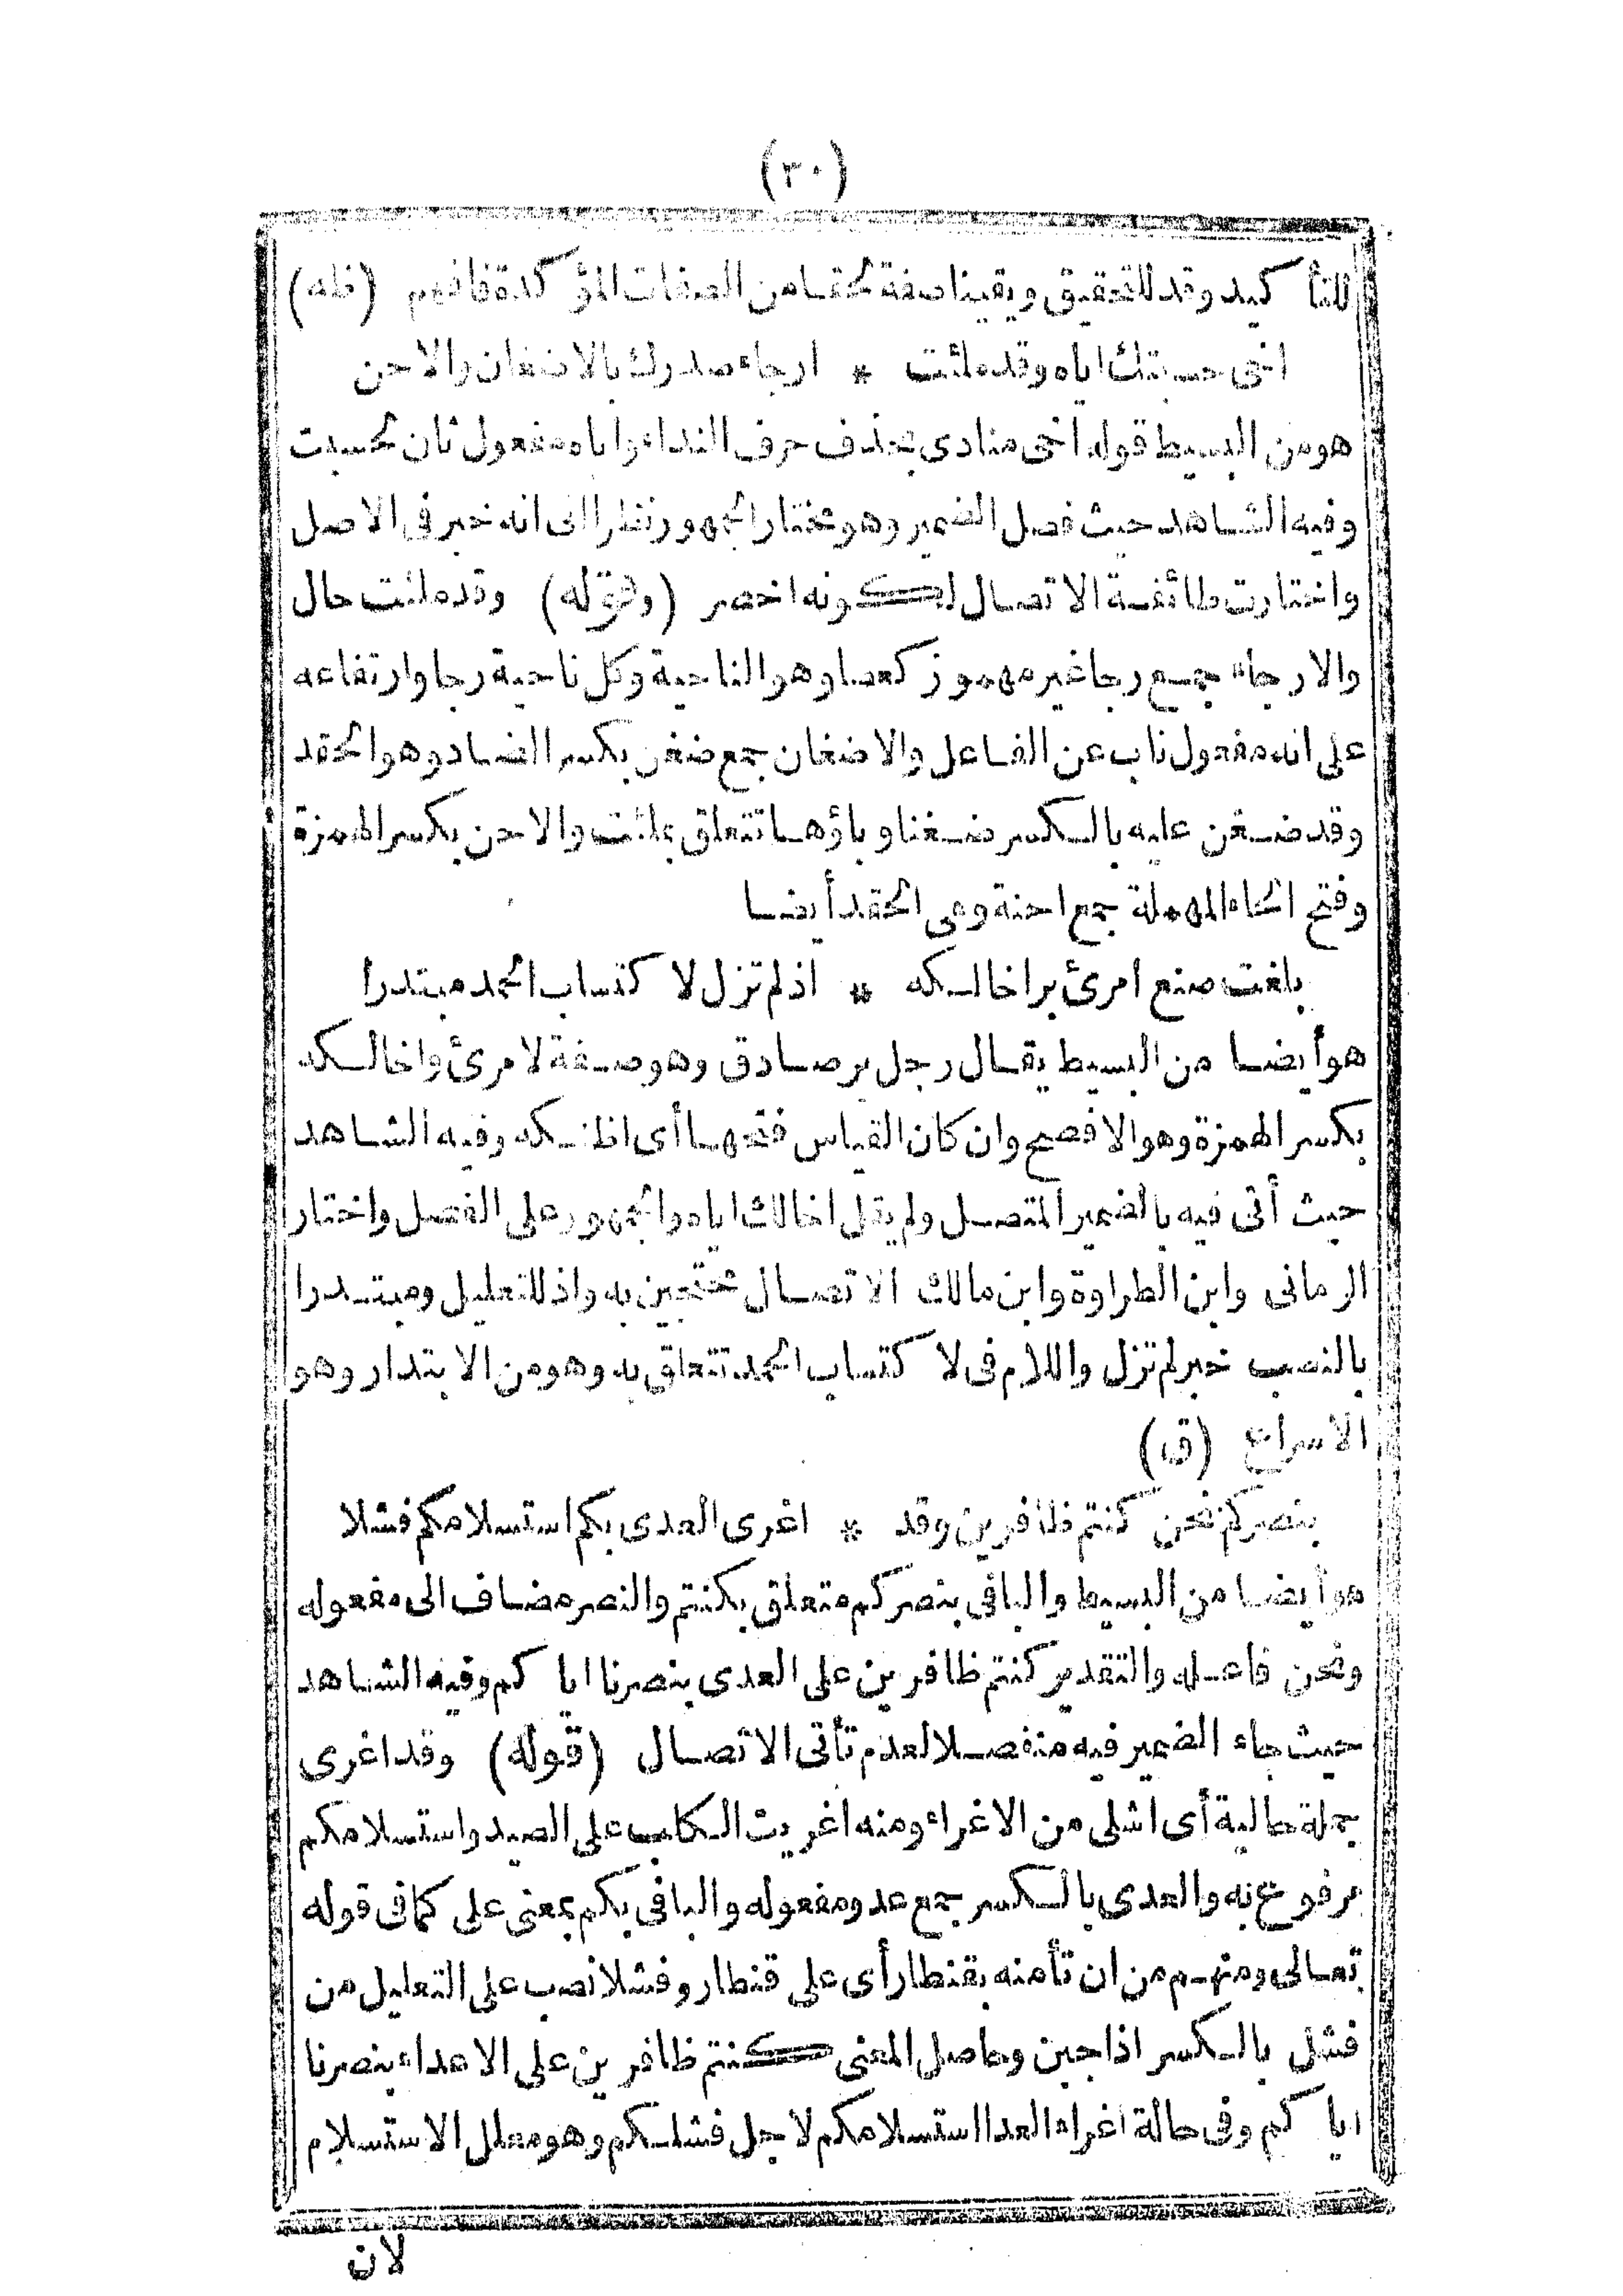 (٣٠)
للتأكيد وقد للتحقيق ويقينا صفة لحقا من الصفات المؤكدة فافهم (ظله)
اخى حسبتك اياه وقد ملئت * ارجاء صدرك بالاضغان والاحن
هو من البسيط قوله اخى منادى بحذف حرف النداء واياه مفعول ثان لحسبت
وفيه الشاهد حيث فصل الضمير وهو مختار الجمهور نظرا الى انه خبر فى الاصل
واختارت طائفة الاتصال لكونه اخصر (وقوله) وقد ملئت حال
والارجاء جمع رجا غير مهموز كعصا وهو الناحية وكل ناحية رجا وارتفاعه
على انه مفعول ناب عن الفاعل والاضغان جمع ضغن بكسر الضاد وهو الحقد
وقد ضغن عليه بالكسر ضغنا وباؤها تتعلق بملئت والاحن بكسر الهمزة
وفتح الحاء المهملة جمع احنة وهى الحقد أيضا
بلغت صنع امرئ بر اخالكه * اذ لم تزل لاكتساب الحمد مبتدرا
هو أيضا من البسيط يقال رجل بر صادق وهو صفة لامرئ واخالكه
بكسر الهمزة وهو الافصح وان كان القياس فتحها أى اظنكه وفيه الشاهد
حيث أتى فيه بالضمير المتصل ولم يقل اخالك اياه والجمهور على الفصل واختار
الرمانى وابن الطراوة وابن مالك الاتصال محتجين به واذ للتعليل ومبتدرا
بالنصب خبر لم تزل واللام فى لاكتساب الحمد تتعلق به وهو من الابتدار وهو
الاسراع (ق)
بنصركم نحن كنتم ظافرين وقد * اغرى العدى بكم استسلامكم فشلا
هو أيضا من البسيط والباء فى بنصركم متعلق بكنتم والنصر مضاف الى مفعوله
ونحن فاعله والتقدير كنتم ظافرين على العدى بنصرنا اياكم وفيه الشاهد
حيث جاء الضمير فيه منفصلا لعدم تأتى الاتصال (قوله) وقد اغرى
جملة حالية أى اشلى من الاغراء ومنه اغريت الكلب على الصيد واستسلامكم
مرفوع به والعدى بالكسر جمع عدو مفعوله والباء فى بكم بمعنى على كما فى قوله
تعالى ومنهم من ان تأمنه بقنطار أى على قنطار وفشلا نصب على التعليل من
فشل بالكسر اذا جبن وحاصل المعنى كنتم ظافرين على الاعداء بنصرنا
اياكم وفى حالة اغراء العدا استسلامكم لاجل فشلكم وهو معلل الاستسلام
لان